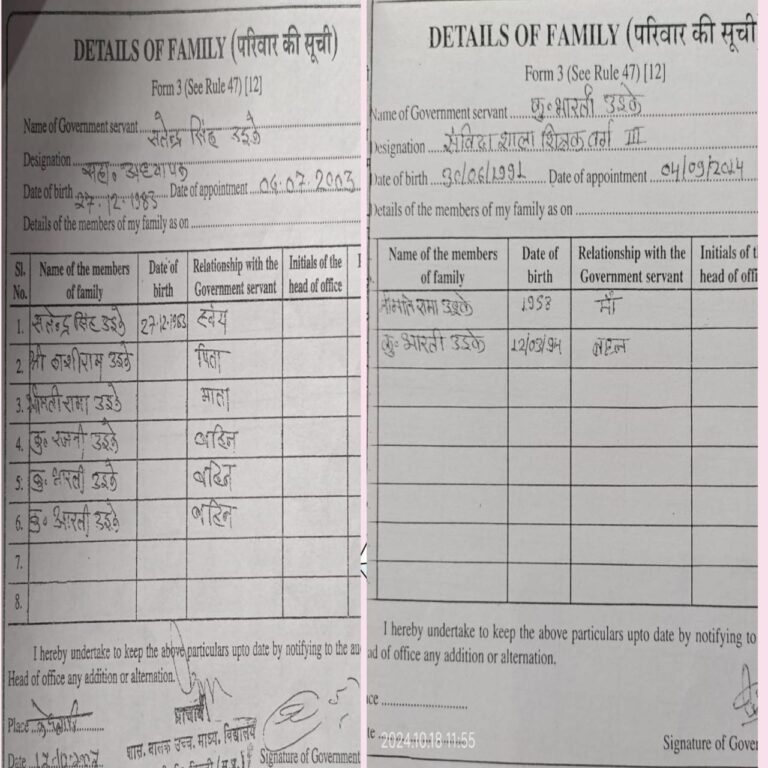 DETAILS OF FAMILY (परिवार की सूची)
Form 3 (See Rule 47) [12]
Name of Government servant सतेन्द्र सिंह उइके
Designation सहा० अध्यापक
Date of birth 27.12.1983 Date of appointment 04.07.2003
Details of the members of my family as on
Sl. No. Name of the members of family Date of birth Relationship with the Government servant Initials of the head of office
1. सतेन्द्र सिंह उइके 27.12.1983 स्वंय
2. श्री काशीराम उइके पिता
3. श्रीमती रामा उइके माता
4. कु० रजनी उइके बहिन
5. कु० भारती उइके बहिन
6. कु० आरती उइके बहिन
7.
8.
I hereby undertake to keep the above particulars upto date by notifying to the
Head of office any addition or alternation.
प्राचार्य
Place
शास. बालक उच्च. माध्य. विद्यालय
Date
Signature of Government
DETAILS OF FAMILY (परिवार की सूची
Form 3 (See Rule 47) [12]
Name of Government servant कु० भारती उइके
Designation संविदा शाला शिक्षक वर्ग III
Date of birth 30/06/1991 Date of appointment 04/09/2014
Details of the members of my family as on
Name of the members of family Date of birth Relationship with the Government servant Initials of t head of offi
श्रीमति रामा उइके 1953 माँ
कु० आरती उइके 12/03/94 बहन
I hereby undertake to keep the above particulars upto date by notifying to
ad of office any addition or alternation.
ce
te
2024.10.18 11:55
Signature of Govern